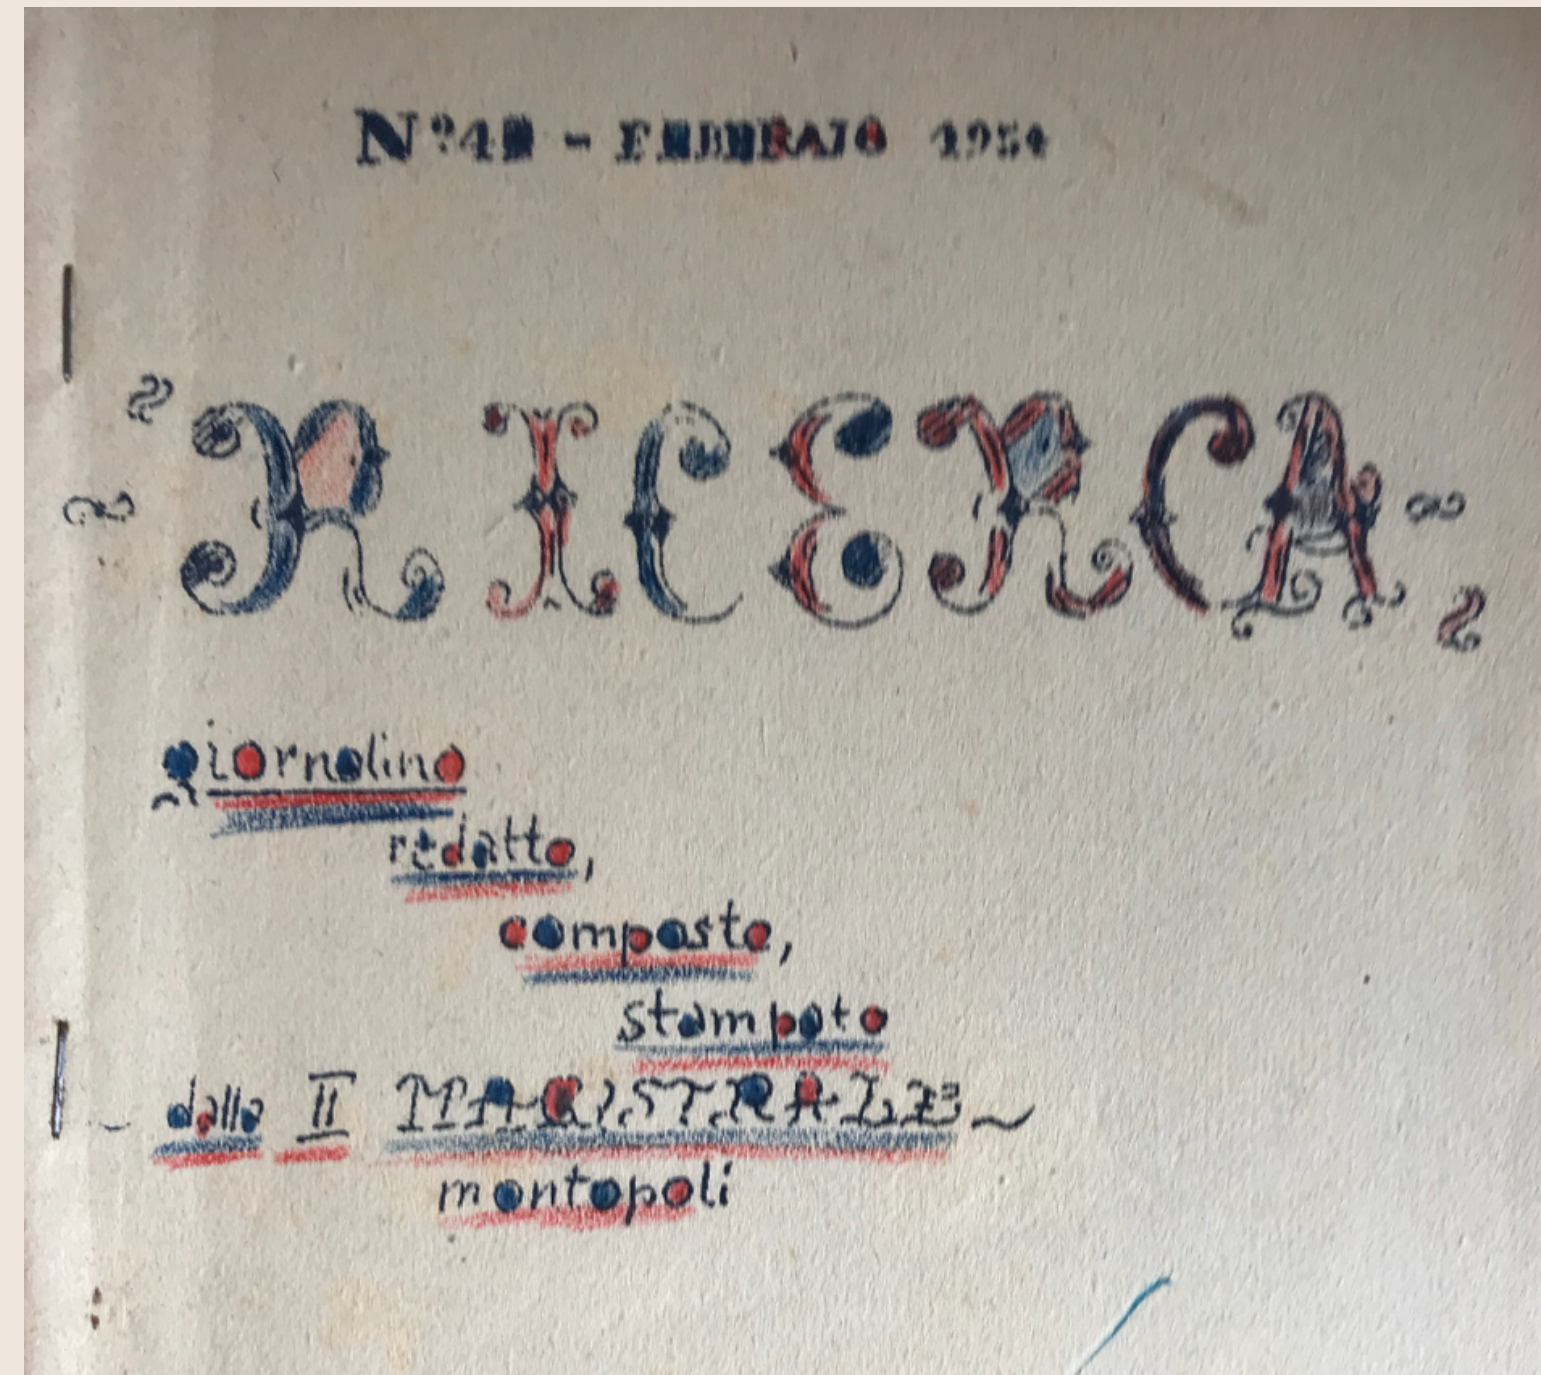 FEBBRAIO 1954
RICERCA
giornalino
redatto,
composto,
stampato
dalla II MAGISTRALE
montopoli